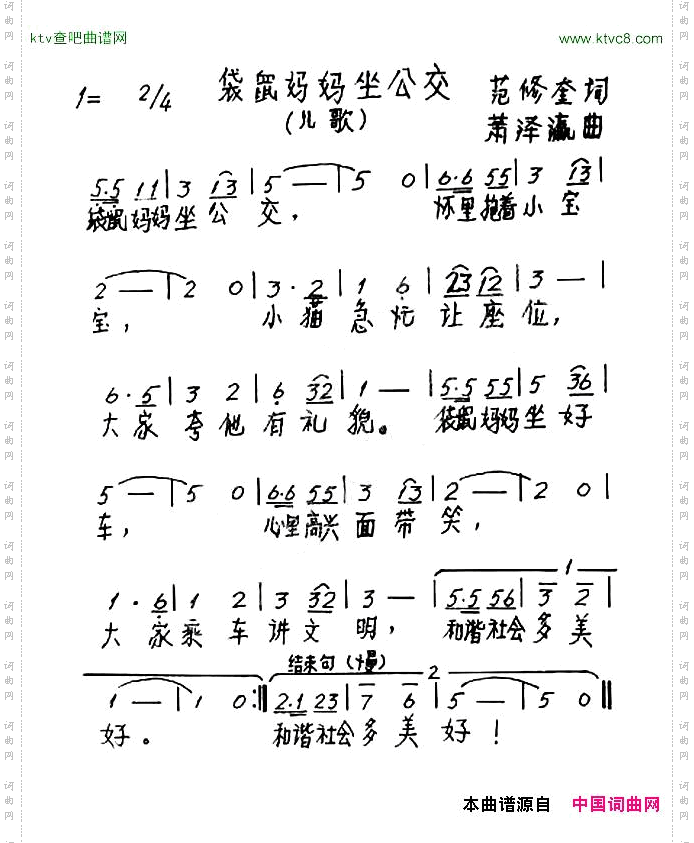 ktv查吧曲谱网 www.ktvc8.com
袋鼠妈妈坐公交 范修奎词
1= 2/4 (儿歌) 萧泽瀛曲
5·5 11 | 3 13 | 5 — | 5 0 | 6·6 55 | 3 13 |
袋鼠妈妈坐公交， 怀里抱着小宝
2 — | 2 0 | 3·2 | 1 6 | 23 12 | 3 — |
宝， 小猫急忙让座位，
6·5 | 3 2 | 6 32 | 1 — | 5·5 55 | 5 36 |
大家夸他有礼貌。 袋鼠妈妈坐好
5 — | 5 0 | 6·6 55 | 3 13 | 2 — | 2 0 |
车， 心里高兴面带笑，
1
1·6 | 1 2 | 3 32 | 3 — | 5·5 56 | 3 2 |
大家乘车讲文明， 和谐社会多美
结束句（慢） 2
1 — | 1 0 :‖ 2·1 23 | 7 6 | 5 — | 5 0 ‖
好。 和谐社会多美好！
本曲谱源自 中国词曲网